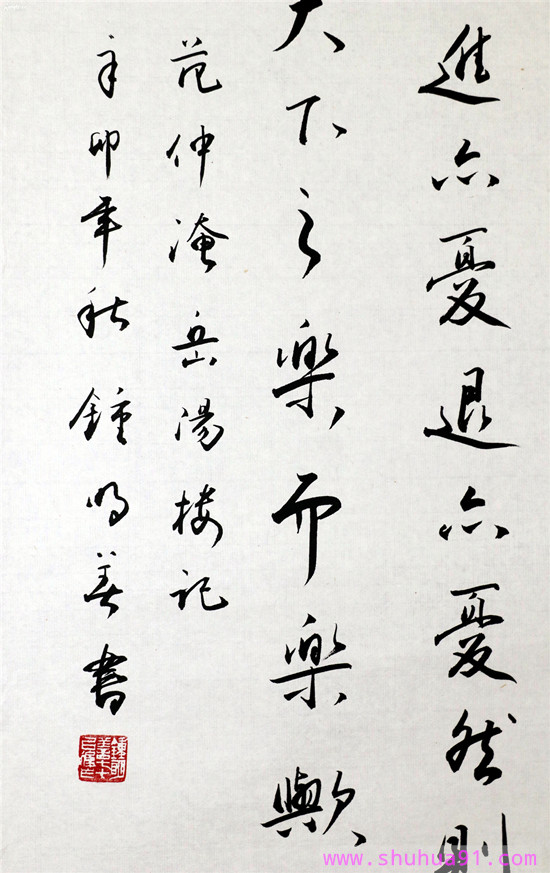 進亦憂退亦憂然則
天下之樂而樂歟
范仲淹岳陽樓記
辛卯年秋鍾明善書
www.shuhua91.com